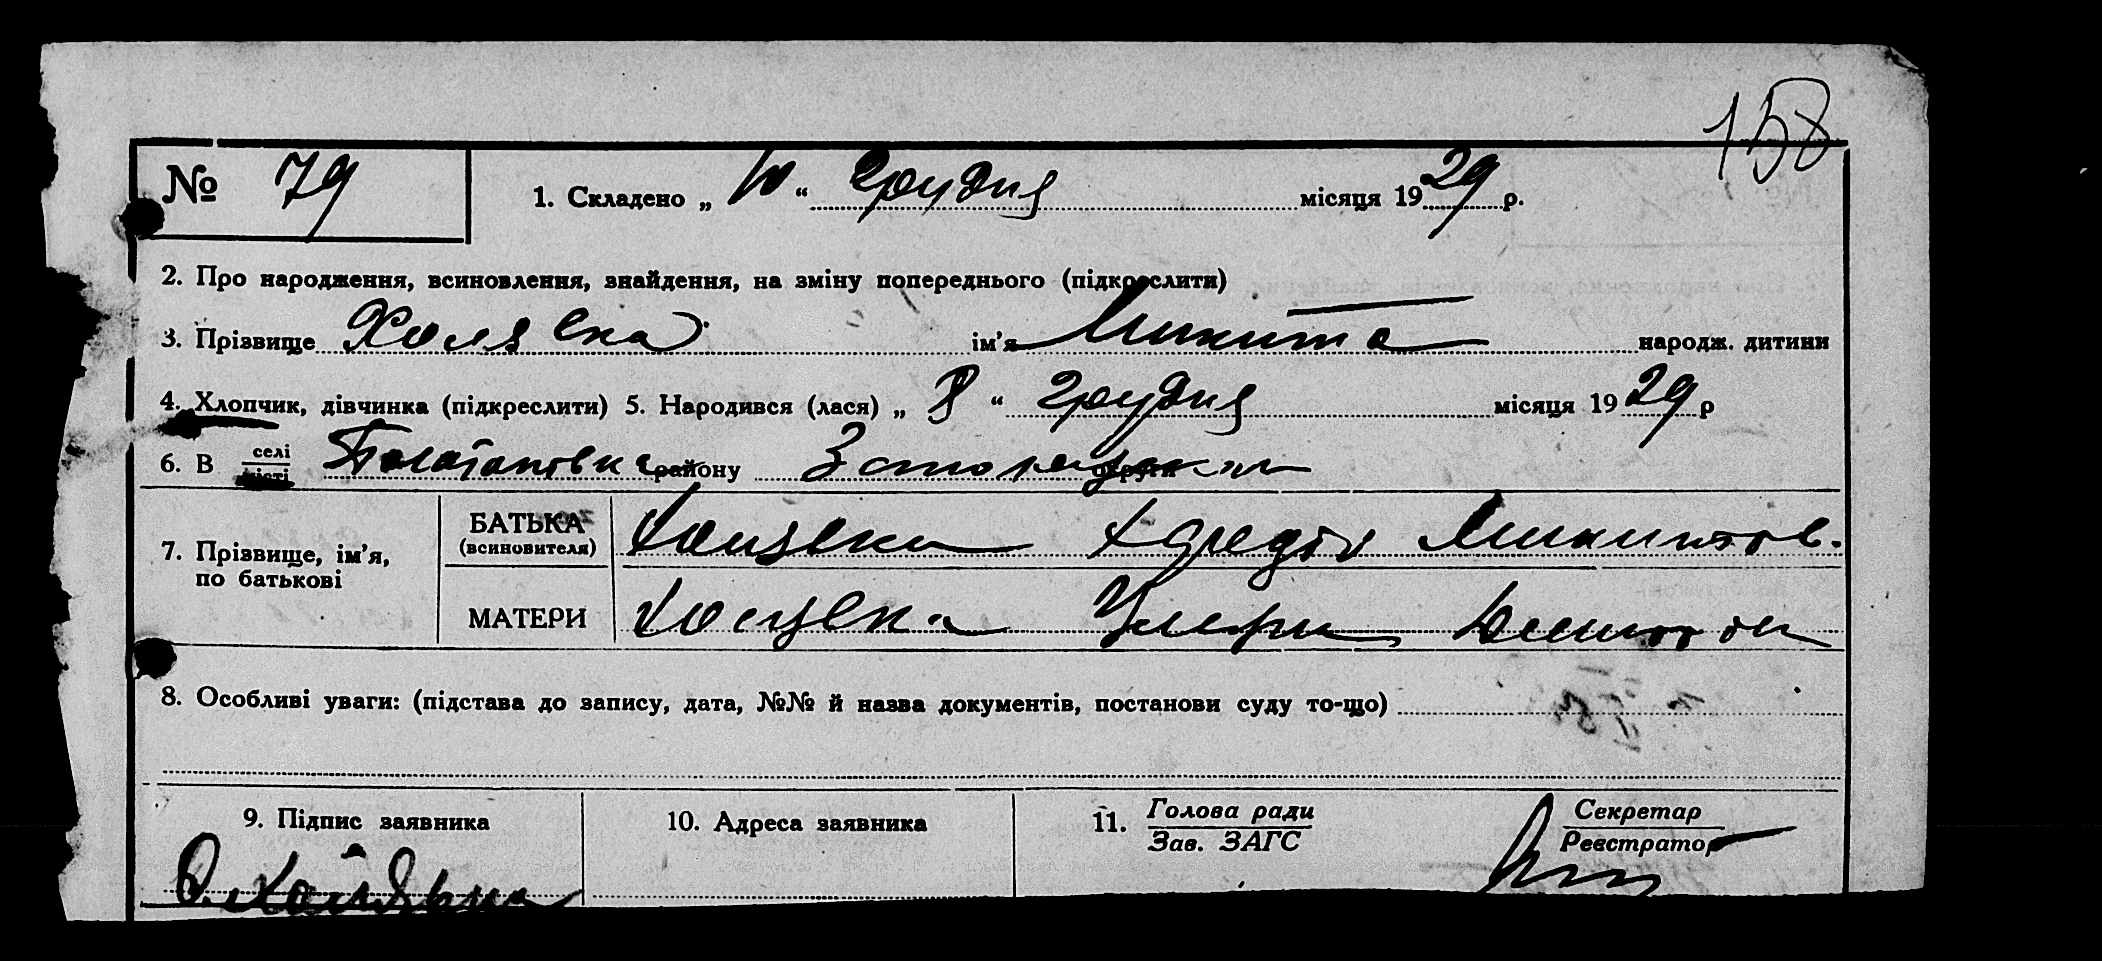 158
№ 79 1. Складено „ 10 “ грудня місяця 1929 р.
2. Про народження, всиновлення, знайдення, на зміну попереднього (підкреслити)
3. Прізвище Холявка ім'я Микита народж. дитини
4. Хлопчик, дівчинка (підкреслити) 5. Народився (лася) „ 8 “ грудня місяця 1929 р
6. В селі місті району округи
7. Прізвище, ім'я, по батькові
БАТЬКА (всиновителя) Холявка Микитов.
МАТЕРИ Холявка
8. Особливі уваги: (підстава до запису, дата, №№ й назва документів, постанови суду то-що)
9. Підпис заявника 10. Адреса заявника 11. Голова ради Секретар
Зав. ЗАГС Реєстратор